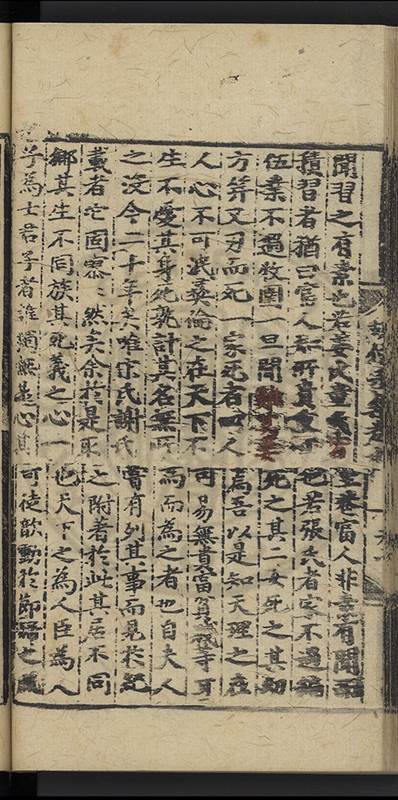 聞習之有素也若姜氏童氏者里巷富人非素有聞而
積習者猶曰富人知所貴重也若張氏者家不過編
伍業不過牧圉一旦聞難其妻死之其二女死之其幼
方笄又刃而死一家死者四人焉吾以是知天理之在
人心不可泯之在天下不可易無貴富
生不愛其身死孰計其名無所為而為之者也自夫人
之没今二十年矣唯宗氏謝氏嘗有列其事而見於紀
載者它固寥〻然矣余於是取之附著於此其居不同
鄉其生不同族其死義之心一也天下之為人臣為人
子為士君子者誰獨無是心其可徒歆動於節之風